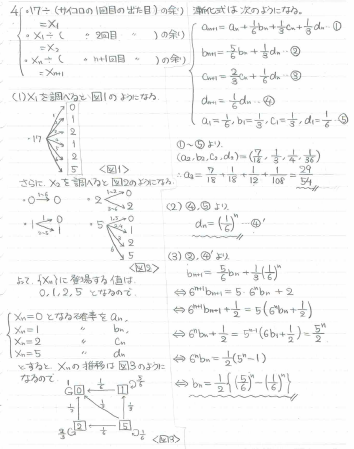 4 ・17÷(サイコロの1回目の出た目)の余り
=X₁
・X₁÷( 〃 2回目 〃 )の余り
=X₂
・Xₙ÷( 〃 n+1回目 〃 )の余り
=Xₙ₊₁
(1) X₁を調べると図1のようになる
・17
0
1
2
1
2
5
<図1>
さらに、X₂を調べると図2のようになる。
・0 →(1~6) 0
・1 → 0
1
・2 → 0
2
・5 → 0
1
2
5
<図2>
よって、{Xₙ}に登場する値は
0, 1, 2, 5 となるので、
Xₙ=0となる確率をaₙ,
Xₙ=1 〃 bₙ,
Xₙ=2 〃 cₙ
Xₙ=5 〃 dₙ
とすると Xₙの推移は図3のように
なるので
1 0 1/6 1 5/6
1/3 1/3 1/3
2/3 2 1/3 5 1/6
<図3>
漸化式は次のようになる。
aₙ₊₁ = aₙ + 1/6 bₙ + 1/3 cₙ + 1/3 dₙ …①
bₙ₊₁ = 5/6 bₙ + 1/3 dₙ …②
cₙ₊₁ = 2/3 cₙ + 1/6 dₙ …③
dₙ₊₁ = 1/6 dₙ …④
a₁=1/6, b₁=1/3, c₁=1/3, d₁=1/6 …⑤
①~⑤より、
(a₂, b₂, c₂, d₂) = (7/18, 1/3, 1/4, 1/36)
∴ a₃ = 7/18 + 1/18 + 1/12 + 1/108 = 29/54
(2) ④,⑤より、
dₙ = (1/6)ⁿ …④'
(3) ②,④'より
bₙ₊₁ = 5/6 bₙ + 1/3 (1/6)ⁿ
⇔ 6ⁿ⁺¹bₙ₊₁ = 5・6ⁿbₙ + 2
⇔ 6ⁿ⁺¹bₙ₊₁ + 1/2 = 5(6ⁿbₙ + 1/2)
⇔ 6ⁿbₙ + 1/2 = 5ⁿ⁻¹(6b₁ + 1/2) = 5ⁿ/2
⇔ 6ⁿbₙ = 1/2 (5ⁿ - 1)
⇔ bₙ = 1/2 {(5/6)ⁿ - (1/6)ⁿ}